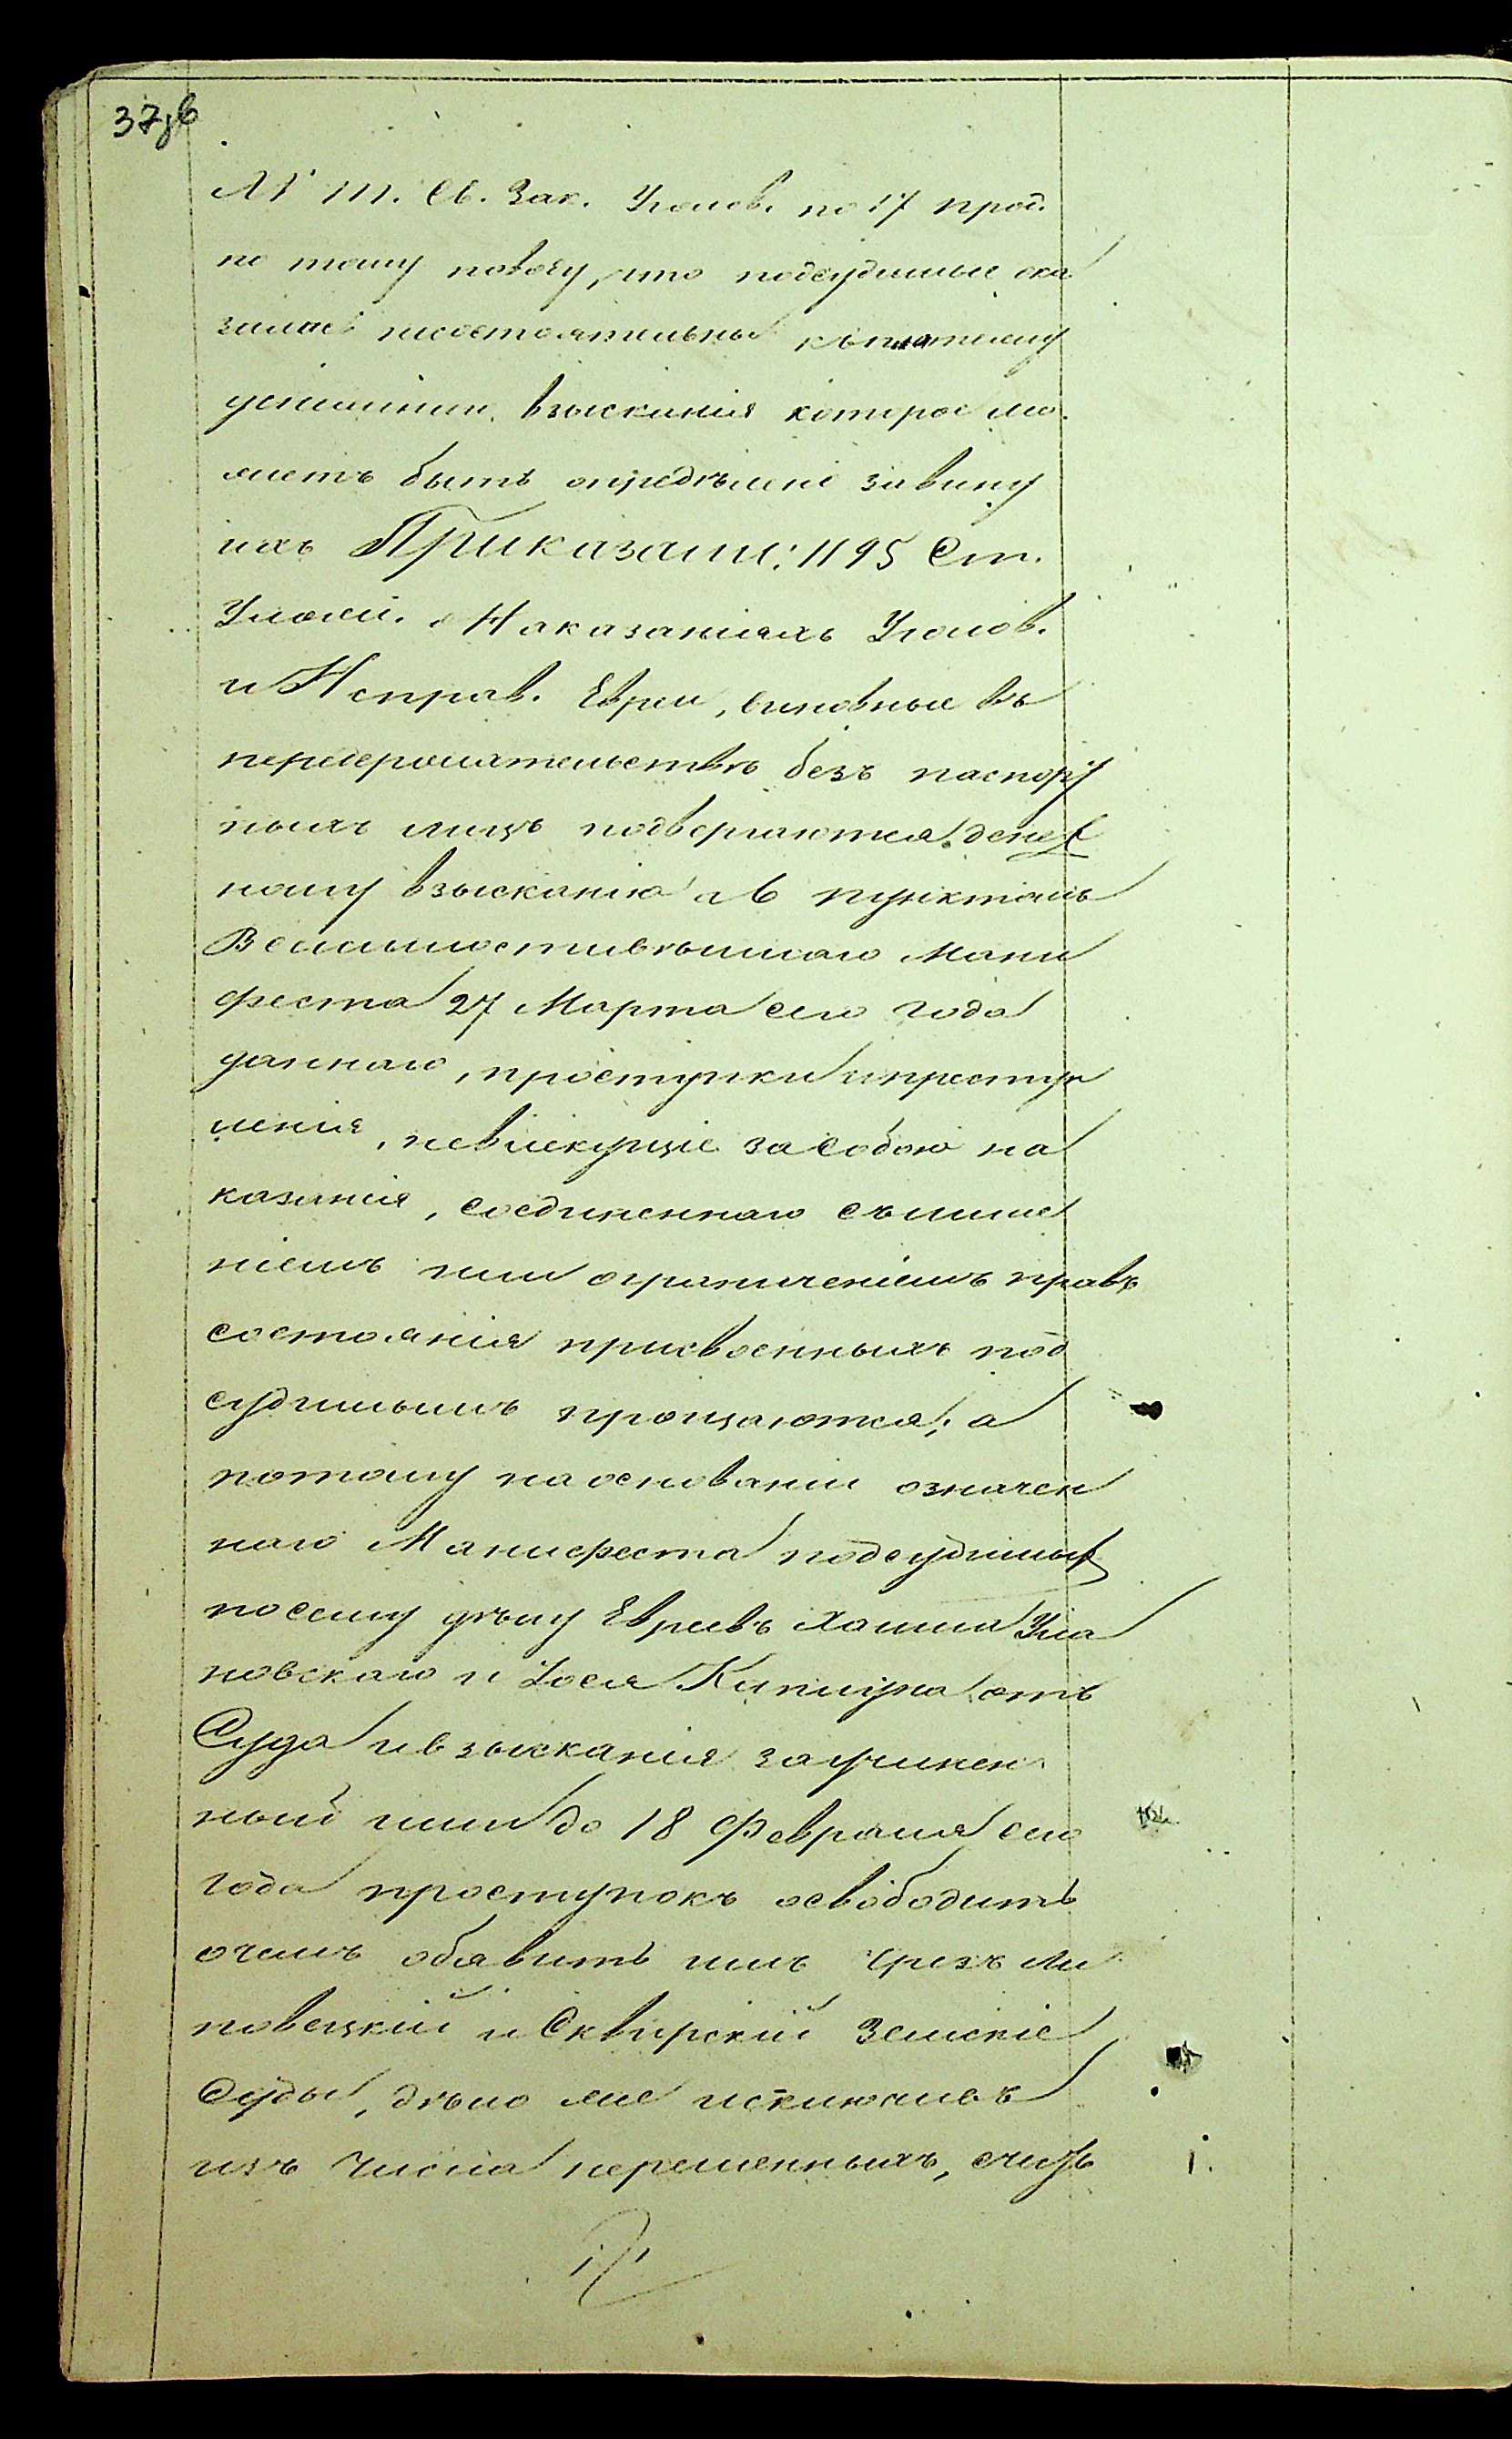 37об
XV т. Св. Зак. Уголов. по 17 прод.
по тому поводу, что подсудимые ока
зались несостоятельны къ платежу
денежнаго взысканія которое мо
жетъ быть опредѣлено за вину
ихъ Приказали: 1195 Ст.
Улож. о Наказаніяхъ Уголов.
и Исправ. Евреи, виновные въ
передержательствѣ безъ паспорт
ныхъ лицъ подвергаются денеж
ному взысканію а 6 пунктомъ
Всемилостивѣйшаго Мани
феста 27 Марта сего года
даннаго, проступки и преступ
ленія, невлекущіе за собою на
казанія, соединеннаго съ лише
ніемъ или ограниченіемъ правъ
состоянія присвоенныхъ под
судимымъ прощаются; а
потому на основаніи означен
наго Манифеста подсудимыхъ
по сему дѣлу Евреевъ Хаима Ула
новскаго и Іося Капмуна отъ
Суда и взысканія за учинен
ный ими до 18 Февраля сего
года проступокъ освободить
о чемъ обявить имъ чрезъ Ли
повецкій и Сквирскій Земскіе
Суды, дѣло же исключивъ
изъ числа нерешенныхъ, счить